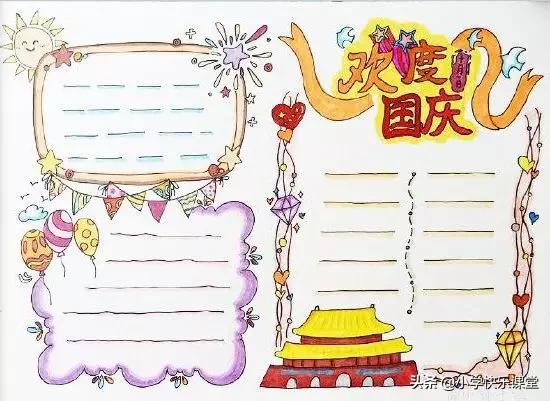 欢度
国庆
头条 @小学快乐课堂